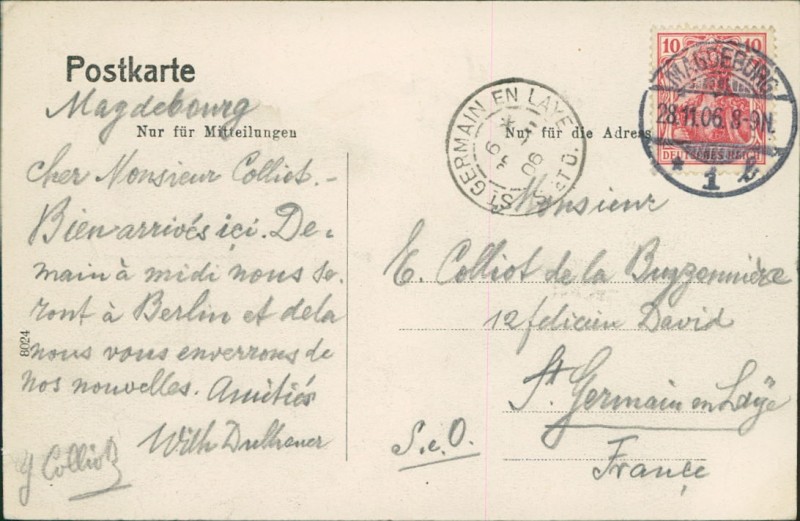 Postkarte
Magdebourg
Nur für Mitteilungen
Cher Monsieur Colliot.-
Bien arrivés içi. De-
main à midi nous se-
ront à Berlin et dela
nous vous enverrons de
nos nouvelles. Amitiés
Colliot
8024
ST GERMAIN EN LAYE
ET O.
06
10 10
DEUTSCHES REICH
MAGDEBURG
28.11.06. 8-9N.
* 1
Nur für die Adresse
Monsieur
E. Colliot de la
12 felicien David
St. Germain en Laÿe
S.e.O.
France